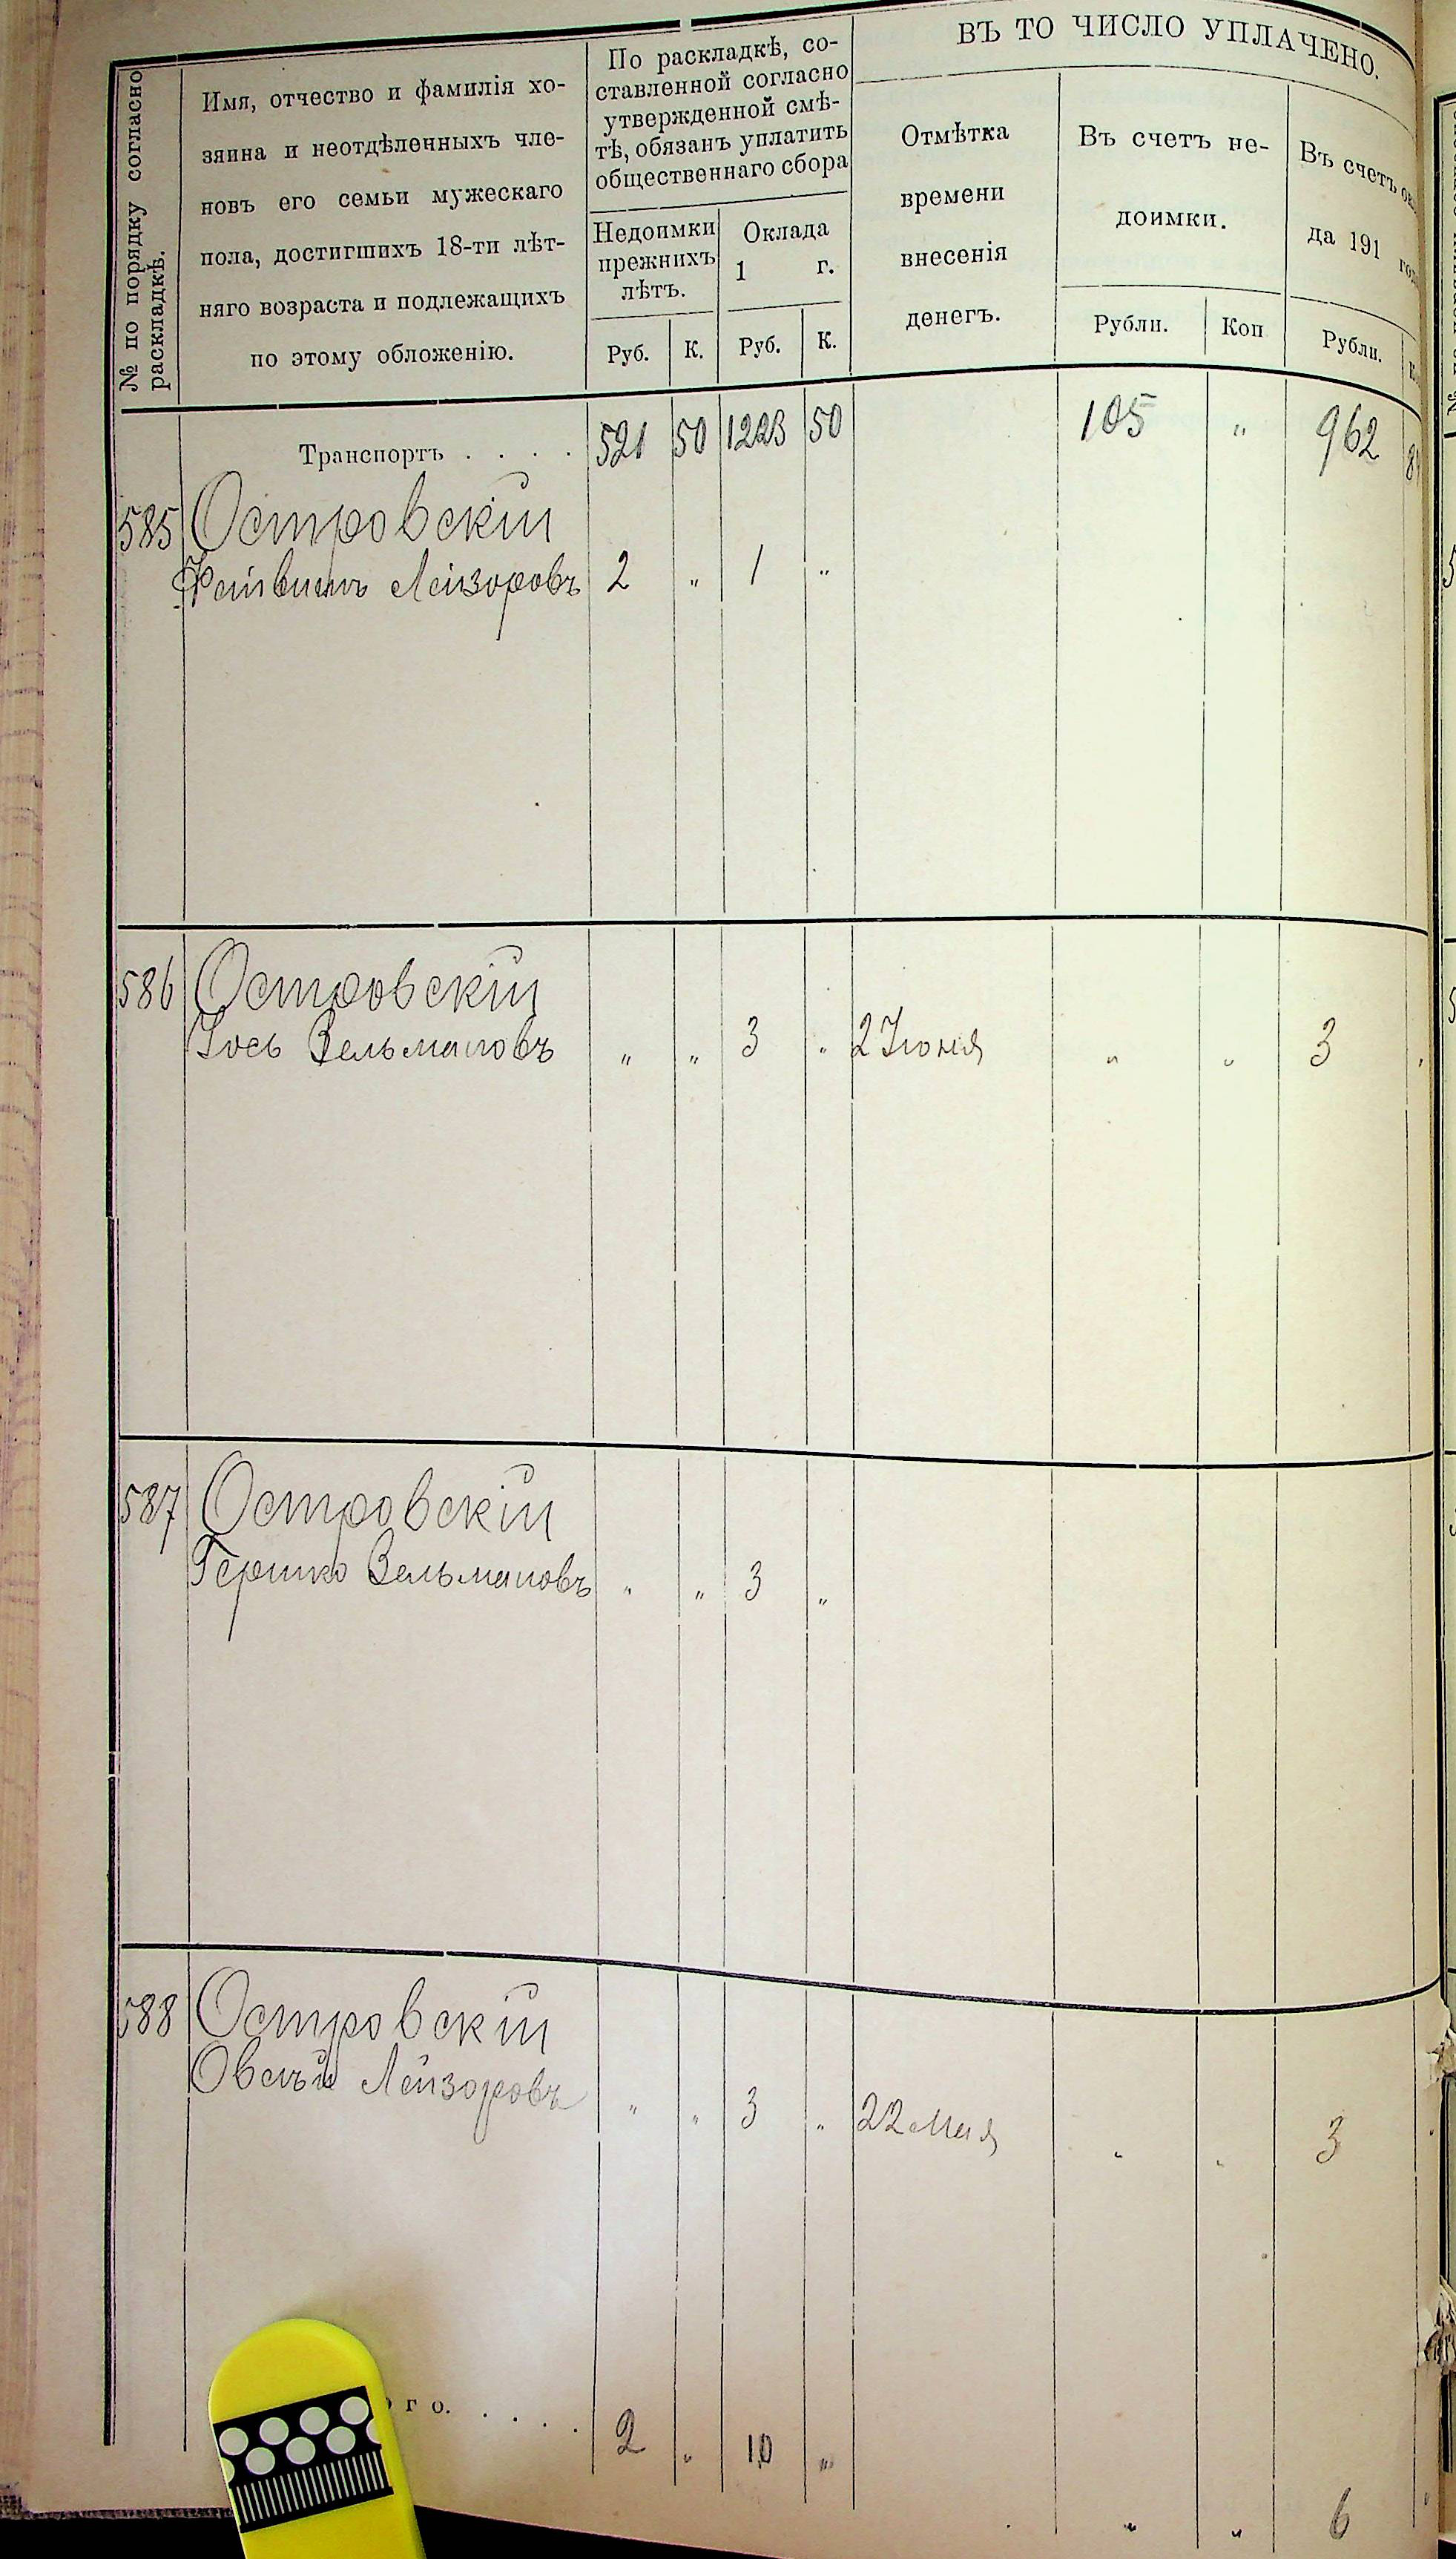 ВЪ ТО ЧИСЛО УПЛАЧЕНО.
№ по порядку согласно
раскладкѣ.
Имя, отчество и фамилія хо-
зяина и неотдѣленныхъ чле-
новъ его семьи мужескаго
пола, достигшихъ 18-ти лѣт-
няго возраста и подлежащихъ
по этому обложенію.
По раскладкѣ, со-
ставленной согласно
утвержденной смѣ-
тѣ, обязанъ уплатить
общественнаго сбора
Недоимки
прежнихъ
лѣтъ.
Оклада
1 г.
Руб. К. Руб. К.
Отмѣтка
времени
внесенія
денегъ.
Въ счетъ не-
доимки.
Рубли. Коп
Въ счетъ
да 191
Рубли.
Транспортъ . . . . 521 50 1223 50 105 " 962
585 Островскій
Лейзоровъ 2 " 1 "
586 Островскій
Іось Зельмановъ " " 3 " 2 Іюня " " 3
587 Островскій
Гершко Зельмановъ " " 3 "
588 Островскій
Овсѣй Лейзоровъ " " 3 " 22 Мая " " 3
ого. . . . . 2 " 10 " " " 6